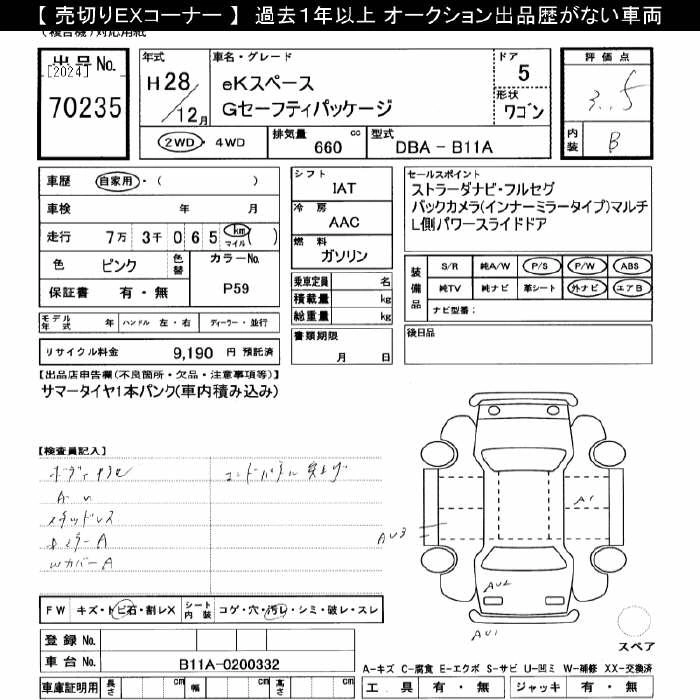 【 売切りEXコーナー 】 過去1年以上 オークション出品歴がない車両
(複合機)対応用紙
出品No.
[2024]
70235
年式
H28/12月
車名・グレード
eKスペース
Gセーフティパッケージ
ドア
5
形状
ワゴン
2WD ・ 4WD
排気量 660 cc
型式 DBA - B11A
評価点
3.5
内装 B
車歴 自家用・( )
車検 年 月
走行 7万 3千 0 6 5 km マイル ( )
色 ピンク 色替
カラーNo.
P59
保証書 有・無
シフト
IAT
冷房
AAC
燃料
ガソリン
乗車定員 名
積載量 kg
総重量 kg
書類期限
月 日
セールスポイント
ストラーダナビ・フルセグ
バックカメラ(インナーミラータイプ)マルチ
L側パワースライドドア
装備品
S/R 純A/W P/S P/W ABS
純TV 純ナビ 革シート 外ナビ エアB
ナビ型番：
後日品
モデル年式 年 ハンドル 左・右 ディーラー・並行
リサイクル料金 9,190 円 預託済
【出品店申告欄(不良箇所・欠品・注意事項等)】
サマータイヤ1本パンク(車内積み込み)
【検査員記入】
A U
スタッドレス
ドミラーA
WカバーA
A1
AU3
AU2
AU1
FW キズ・トビ石・割レX シート内装 コゲ・穴・汚レ・シミ・破レ・スレ
登録 No.
車台 No. B11A-0200332
車庫証明用 長さ cm 幅 cm 高さ cm
スペア
A-キズ C-腐食 E-エクボ S-サビ U-凹ミ W-補修 XX-交換済
工具 有・無 ジャッキ 有・無